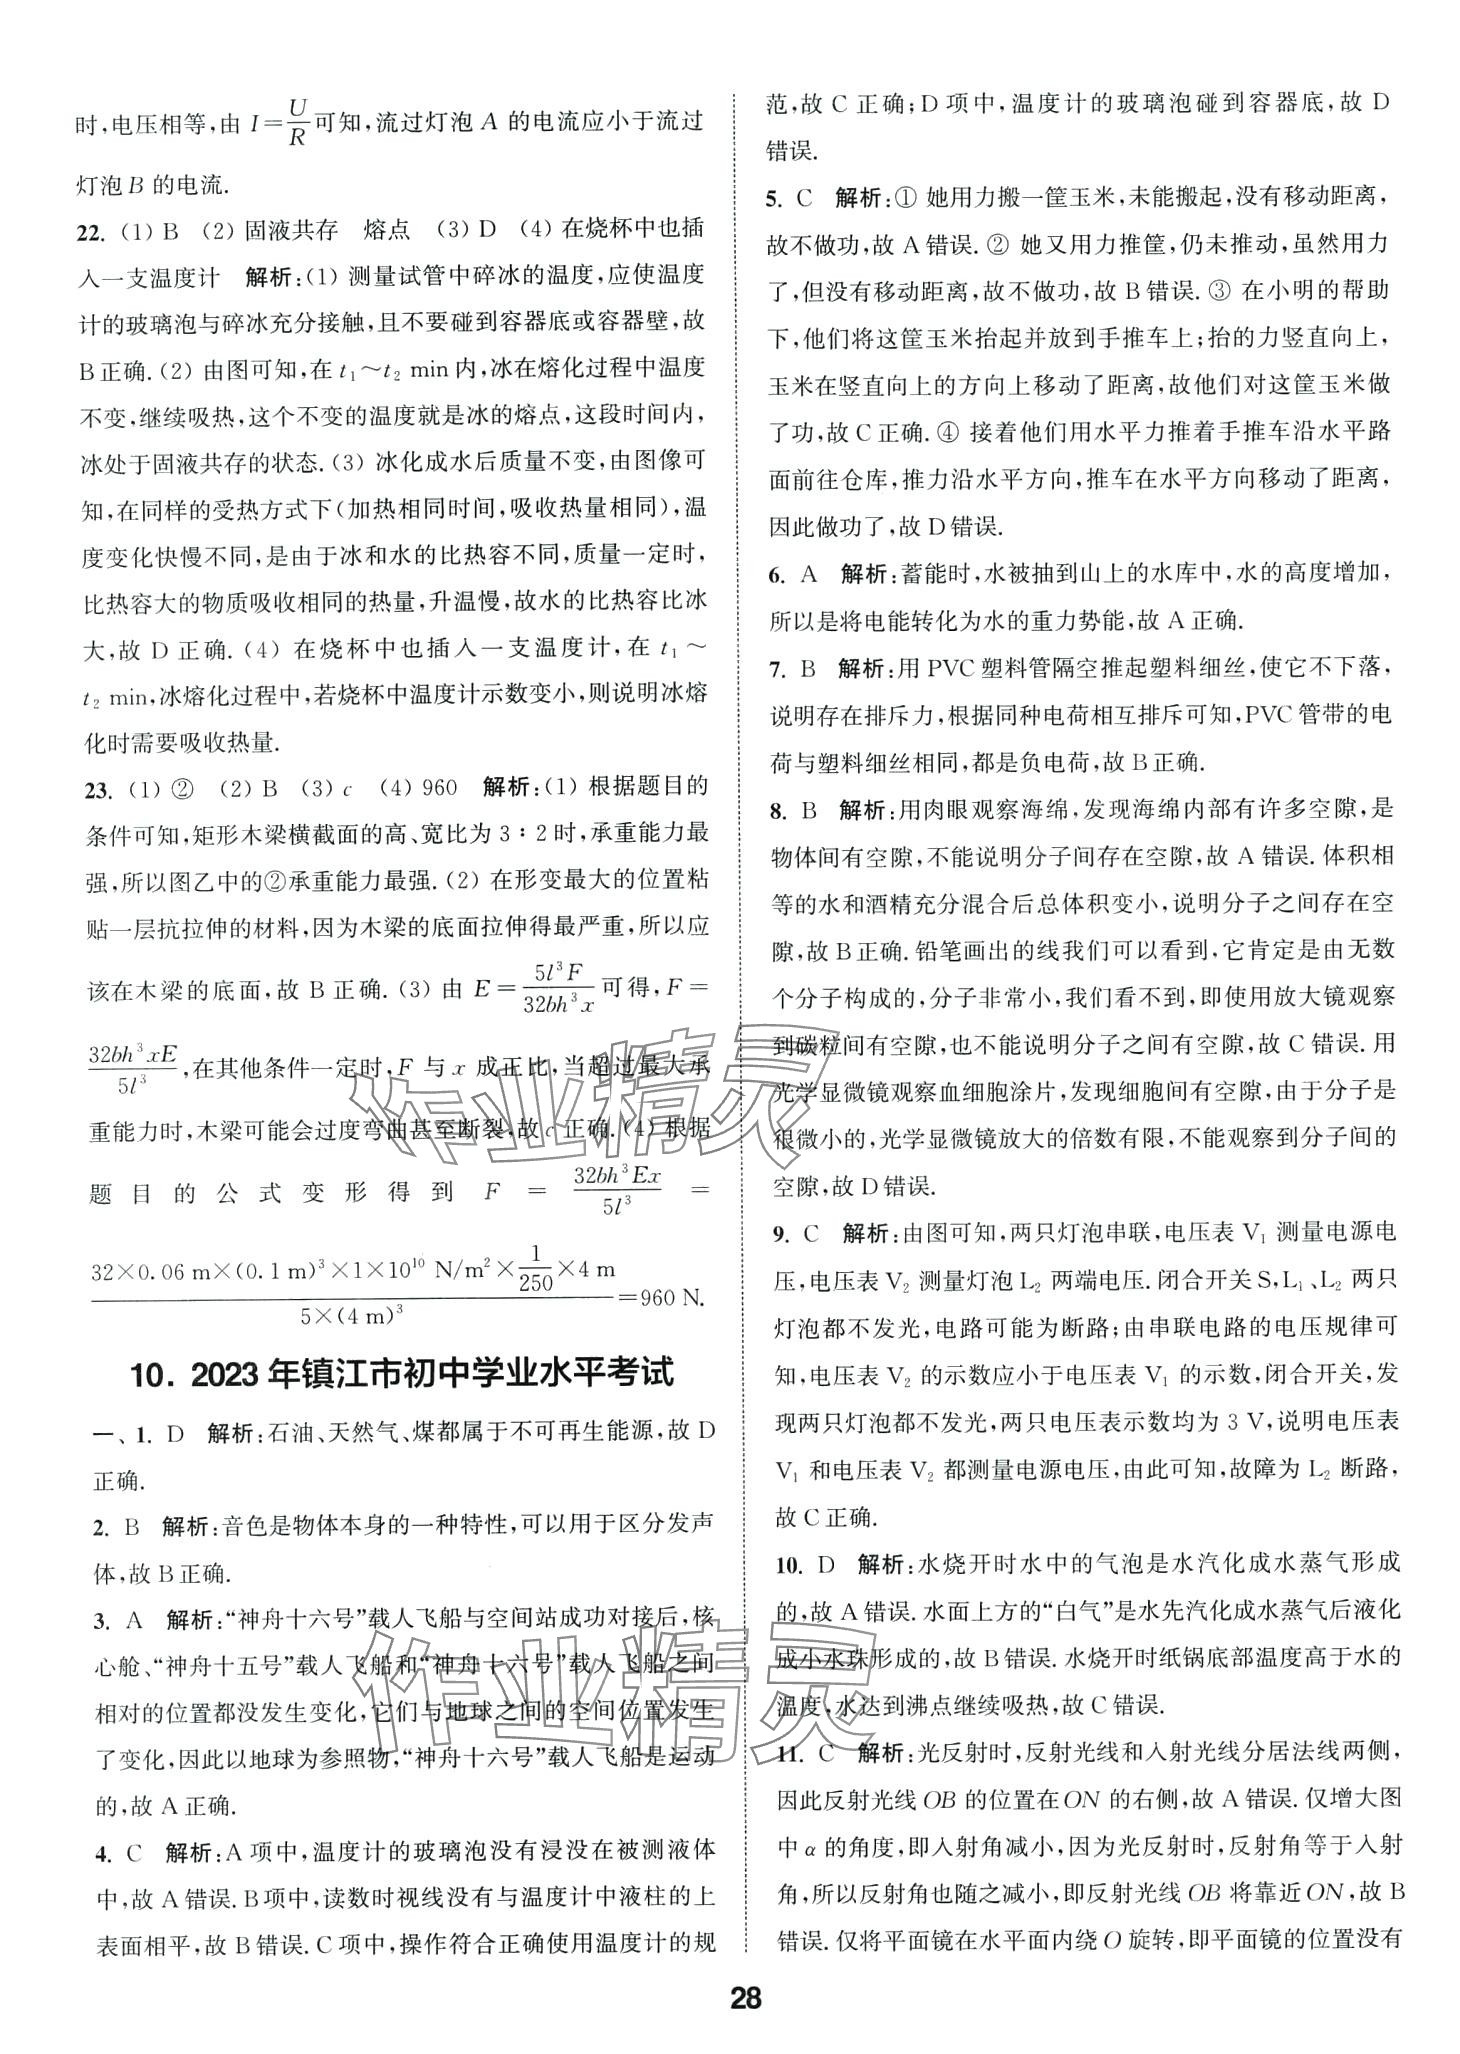 时,电压相等,由 I=U/R可知,流过灯泡 A 的电流应小于流过
灯泡 B 的电流.
22. (1) B (2) 固液共存 熔点 (3) D (4) 在烧杯中也插
入一支温度计 解析:(1) 测量试管中碎冰的温度,应使温度
计的玻璃泡与碎冰充分接触,且不要碰到容器底或容器壁,故
B 正确.(2) 由图可知,在 t₁～t₂ min 内,冰在熔化过程中温度
不变,继续吸热,这个不变的温度就是冰的熔点,这段时间内,
冰处于固液共存的状态.(3) 冰化成水后质量不变,由图像可
知,在同样的受热方式下(加热相同时间,吸收热量相同),温
度变化快慢不同,是由于冰和水的比热容不同,质量一定时,
比热容大的物质吸收相同的热量,升温慢,故水的比热容比冰
大,故 D 正确.(4) 在烧杯中也插入一支温度计,在 t₁～
t₂ min,冰熔化过程中,若烧杯中温度计示数变小,则说明冰熔
化时需要吸收热量.
23. (1) ② (2) B (3) c (4) 960 解析:(1) 根据题目的
条件可知,矩形木梁横截面的高、宽比为 3∶2 时,承重能力最
强,所以图乙中的②承重能力最强.(2) 在形变最大的位置粘
贴一层抗拉伸的材料,因为木梁的底面拉伸得最严重,所以应
该在木梁的底面,故 B 正确.(3) 由 E=5l³F/32bh³x可得,F=
32bh³xE/5l³,在其他条件一定时,F 与 x 成正比,当超过最大承
重能力时,木梁可能会过度弯曲甚至断裂,故 c 正确.(4) 根据
题目的公式变形得到 F=32bh³Ex/5l³=
32×0.06 m×(0.1 m)³×1×10¹⁰ N/m²×1/250×4 m/5×(4 m)³=960 N.
10. 2023 年镇江市初中学业水平考试
一、1. D 解析:石油、天然气、煤都属于不可再生能源,故 D
正确.
2. B 解析:音色是物体本身的一种特性,可以用于区分发声
体,故 B 正确.
3. A 解析:“神舟十六号”载人飞船与空间站成功对接后,核
心舱、“神舟十五号”载人飞船和“神舟十六号”载人飞船之间
相对的位置都没发生变化,它们与地球之间的空间位置发生
了变化,因此以地球为参照物,“神舟十六号”载人飞船是运动
的,故 A 正确.
4. C 解析:A 项中,温度计的玻璃泡没有浸没在被测液体
中,故 A 错误.B 项中,读数时视线没有与温度计中液柱的上
表面相平,故 B 错误.C 项中,操作符合正确使用温度计的规
范,故 C 正确;D 项中,温度计的玻璃泡碰到容器底,故 D
错误.
5. C 解析:① 她用力搬一筐玉米,未能搬起,没有移动距离,
故不做功,故 A 错误.② 她又用力推筐,仍未推动,虽然用力
了,但没有移动距离,故不做功,故 B 错误.③ 在小明的帮助
下,他们将这筐玉米抬起并放到手推车上;抬的力竖直向上,
玉米在竖直向上的方向上移动了距离,故他们对这筐玉米做
了功,故 C 正确.④ 接着他们用水平力推着手推车沿水平路
面前往仓库,推力沿水平方向,推车在水平方向移动了距离,
因此做功了,故 D 错误.
6. A 解析:蓄能时,水被抽到山上的水库中,水的高度增加,
所以是将电能转化为水的重力势能,故 A 正确.
7. B 解析:用 PVC 塑料管隔空推起塑料细丝,使它不下落,
说明存在排斥力,根据同种电荷相互排斥可知,PVC 管带的电
荷与塑料细丝相同,都是负电荷,故 B 正确.
8. B 解析:用肉眼观察海绵,发现海绵内部有许多空隙,是
物体间有空隙,不能说明分子间存在空隙,故 A 错误.体积相
等的水和酒精充分混合后总体积变小,说明分子之间存在空
隙,故 B 正确.铅笔画出的线我们可以看到,它肯定是由无数
个分子构成的,分子非常小,我们看不到,即使用放大镜观察
到碳粒间有空隙,也不能说明分子之间有空隙,故 C 错误.用
光学显微镜观察血细胞涂片,发现细胞间有空隙,由于分子是
很微小的,光学显微镜放大的倍数有限,不能观察到分子间的
空隙,故 D 错误.
9. C 解析:由图可知,两只灯泡串联,电压表 V₁ 测量电源电
压,电压表 V₂ 测量灯泡 L₂ 两端电压.闭合开关 S,L₁、L₂ 两只
灯泡都不发光,电路可能为断路;由串联电路的电压规律可
知,电压表 V₂ 的示数应小于电压表 V₁ 的示数,闭合开关,发
现两只灯泡都不发光,两只电压表示数均为 3 V,说明电压表
V₁ 和电压表 V₂ 都测量电源电压,由此可知,故障为 L₂ 断路,
故 C 正确.
10. D 解析:水烧开时水中的气泡是水汽化成水蒸气形成
的,故 A 错误.水面上方的“白气”是水先汽化成水蒸气后液化
成小水珠形成的,故 B 错误.水烧开时纸锅底部温度高于水的
温度,水达到沸点继续吸热,故 C 错误.
11. C 解析:光反射时,反射光线和入射光线分居法线两侧,
因此反射光线 OB 的位置在 ON 的右侧,故 A 错误.仅增大图
中 α 的角度,即入射角减小,因为光反射时,反射角等于入射
角,所以反射角也随之减小,即反射光线 OB 将靠近 ON,故 B
错误.仅将平面镜在水平面内绕 O 旋转,即平面镜的位置没有
28
作业精灵
作业精灵